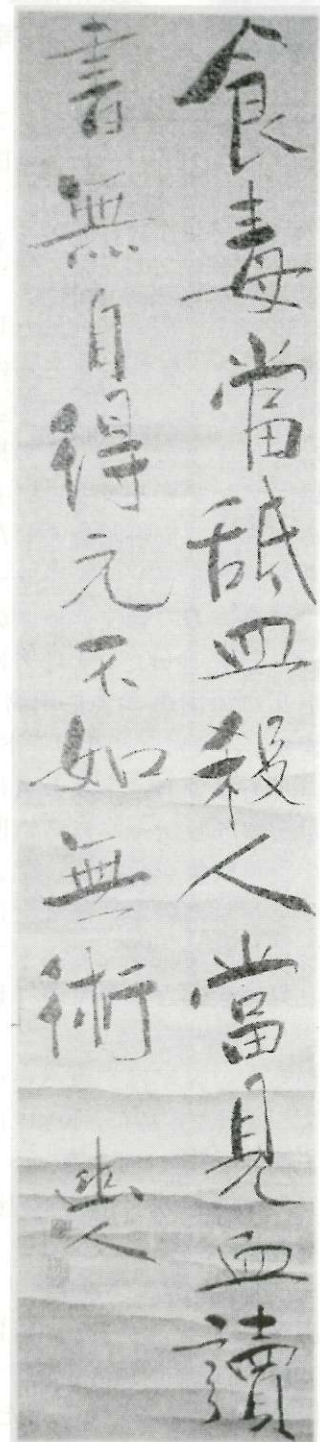 食毒當舐皿殺人當見血讀
書無自得元不如無術 幽人